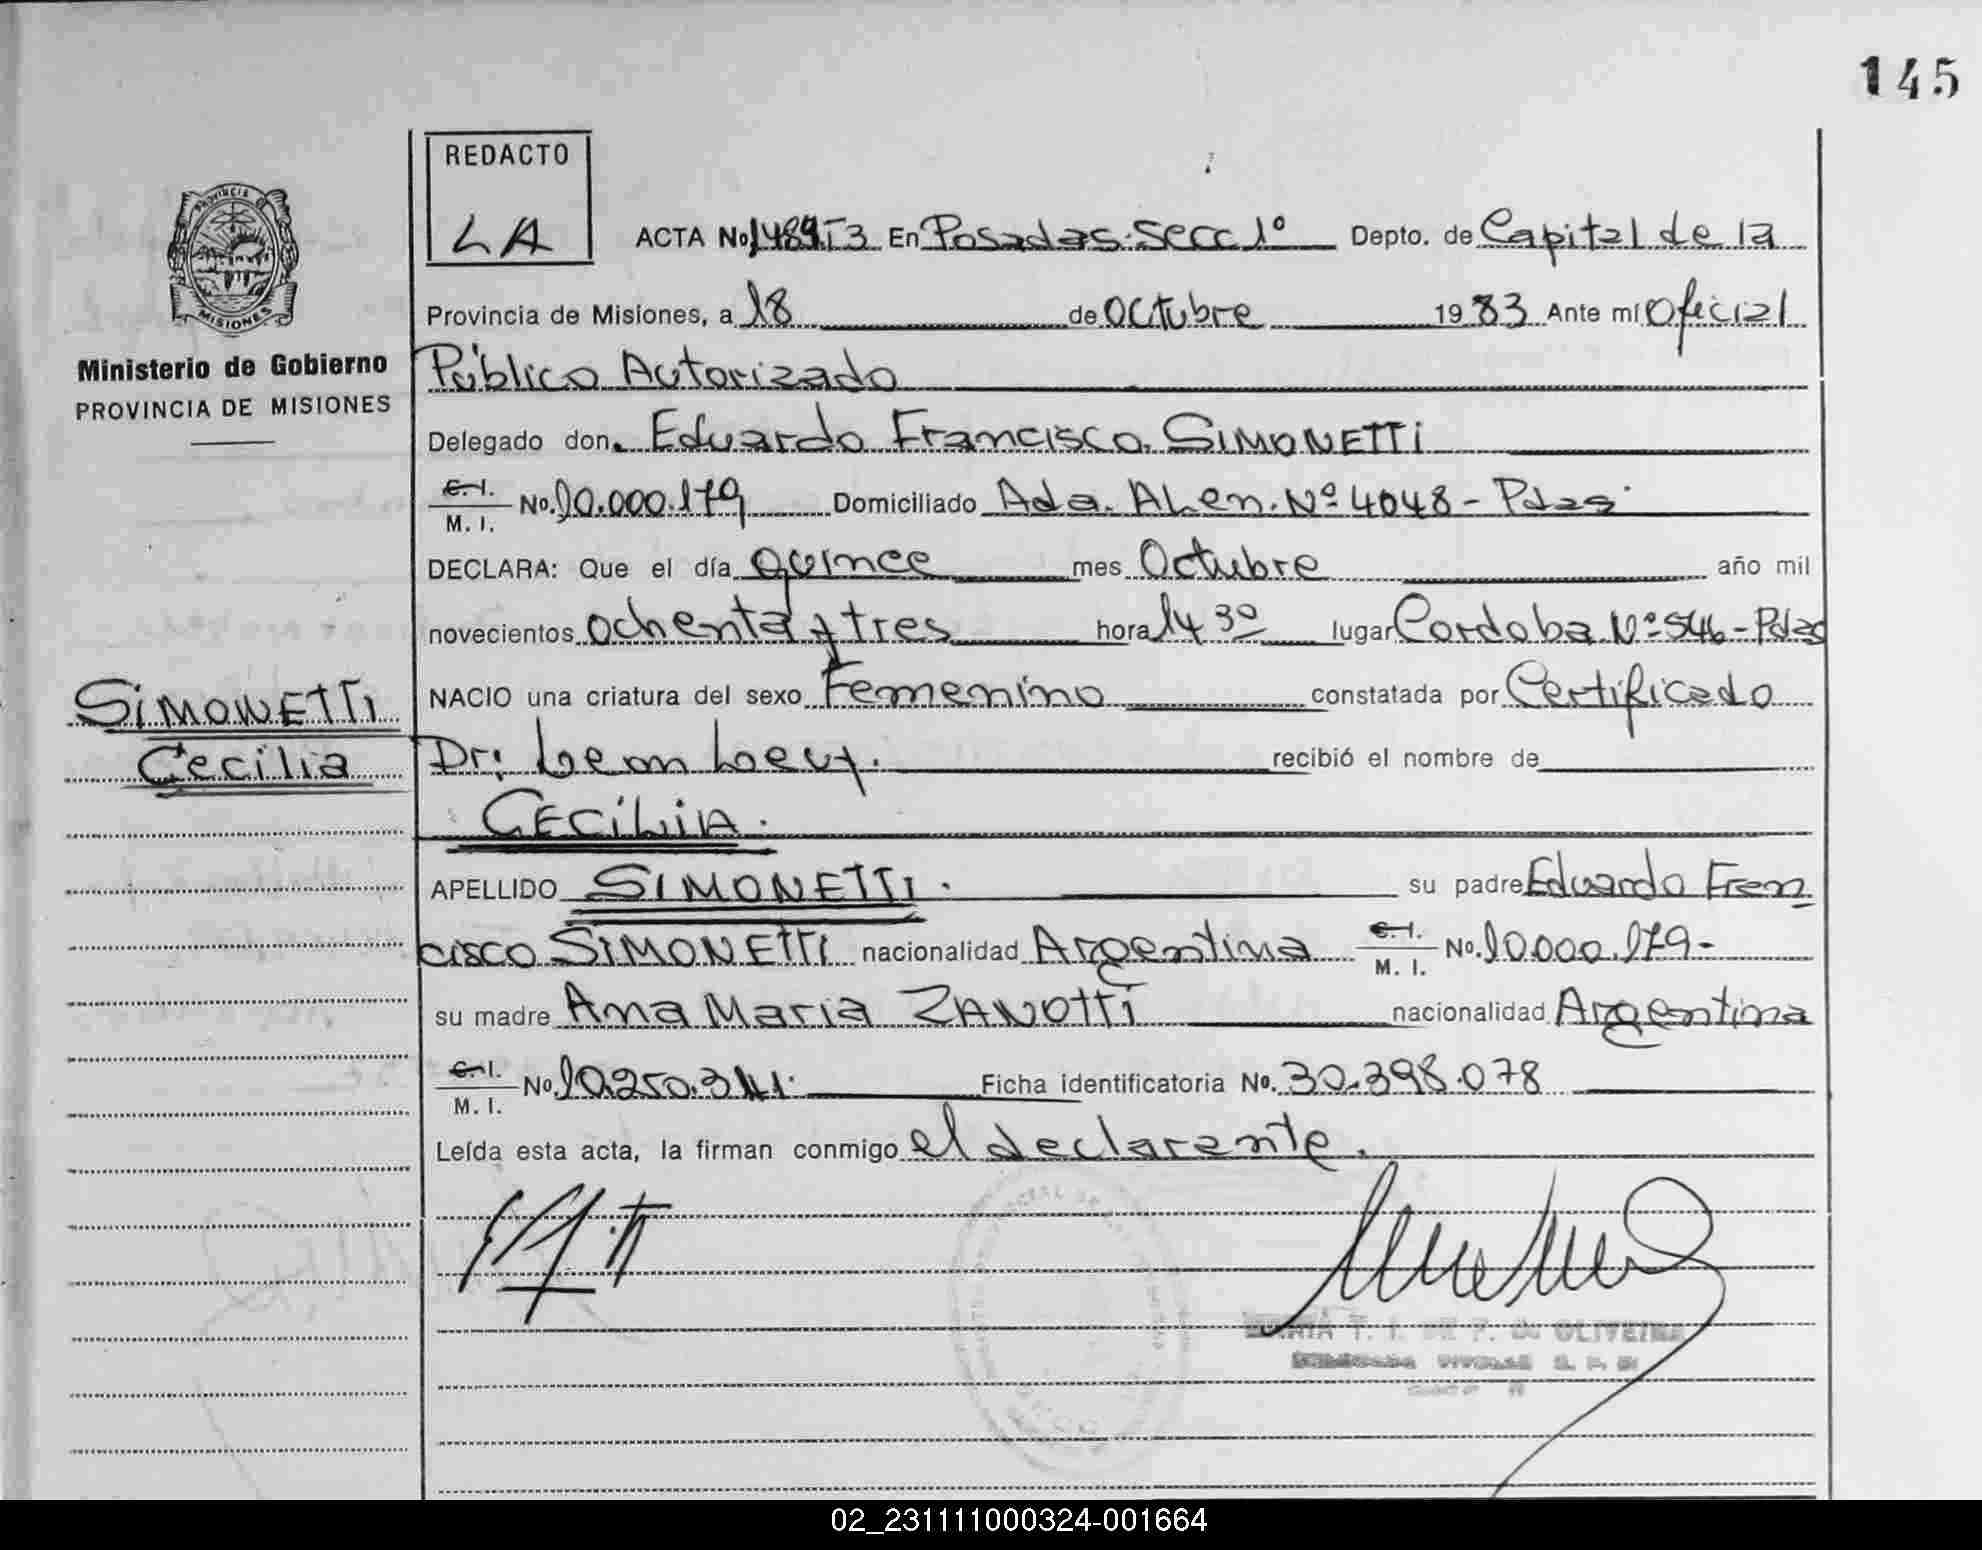 145
REDACTO
LA
ACTA No En Posadas. Secc 1º Depto. de Capital de la
Provincia de Misiones, a 18 de Octubre 1983 Ante mí Oficial
Ministerio de Gobierno
PROVINCIA DE MISIONES
Público Autorizado
Delegado don. Eduardo Francisco. SIMONETTI
C. I.
M. I. No. 10.000.179 Domiciliado Ada. ALen. Nº 4048 - Pdas
DECLARA: Que el día quince mes Octubre año mil
novecientos ochenta y tres hora 14 30 lugar Cordoba Nº 546 - Pdas
NACIO una criatura del sexo Femenino constatada por Certificado
SIMONETTI
Cecilia
Dr: Leon Levy. recibió el nombre de
CECILIA.
APELLIDO SIMONETTI. su padre Eduardo Fran
cisco SIMONETTI nacionalidad Argentina C. I.
M. I. No. 10.000.179-
su madre Ana Maria ZANOTTI nacionalidad Argentina
C. I.
M. I. No. 10.250.341. Ficha identificatoria No. 30.398.078
Leída esta acta, la firman conmigo el declarante.
MARIA T. I. DE F. D. OLIVEIRA
02_231111000324-001664